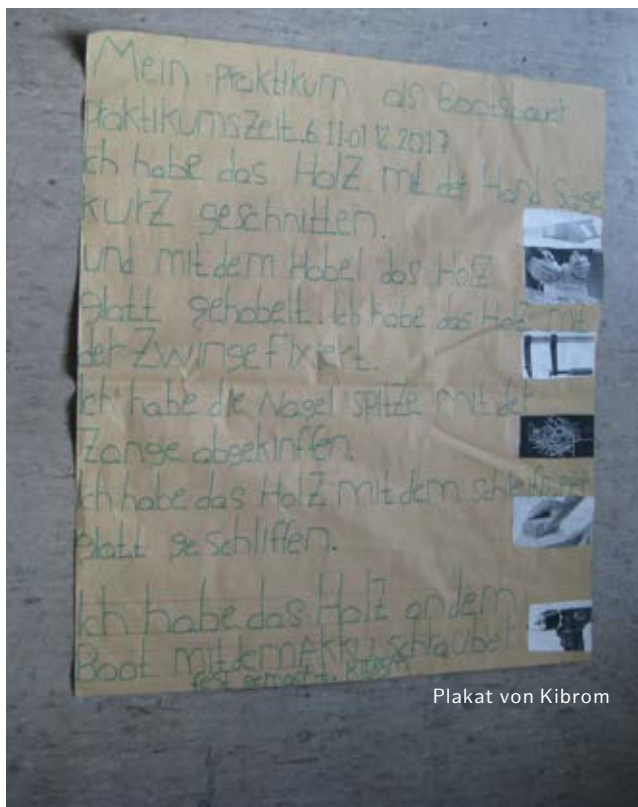 Mein praktikum als Bootsbauer
praktikumszeit.6 11-01.12.2017
Ich habe das HolZ mit der Hand säge
kurZ geschnitten.
und mit dem Hobel das HolZ
glatt gehobelt. Ich habe das Holz mit
der Zwinge fixiert.
Ich habe die Nagel spitze mit der
Zange abgekinffen.
Ich habe das HolZ mit dem schleif
glatt geschliffen.
Ich habe das HolZ an dem
Boot mit dem Akku schrauber
fest gemacht. Kibrom
Plakat von Kibrom